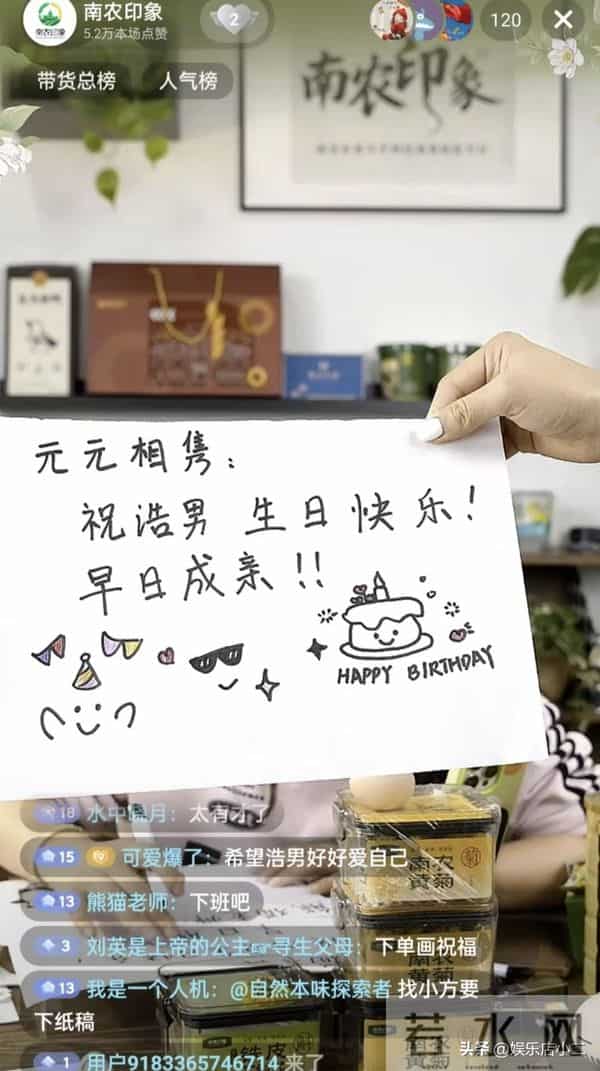 南农印象
5.2万本场点赞
2
120
带货总榜
人气榜
南农印象
元元相隽：
祝浩男 生日快乐！
早日成亲！！
HAPPY BIRTHDAY
18 水中皓月：太有才了
15 可爱爆了：希望浩男好好爱自己
13 熊猫老师：下班吧
3 刘英是上帝的公主👉寻生父母：下单画祝福
13 我是一个人机：@自然本味探索者 找小方要
下纸稿
1 用户9183365746714 来了
南农
黄菊
黄菊
若水网
头条 @娱乐店小二